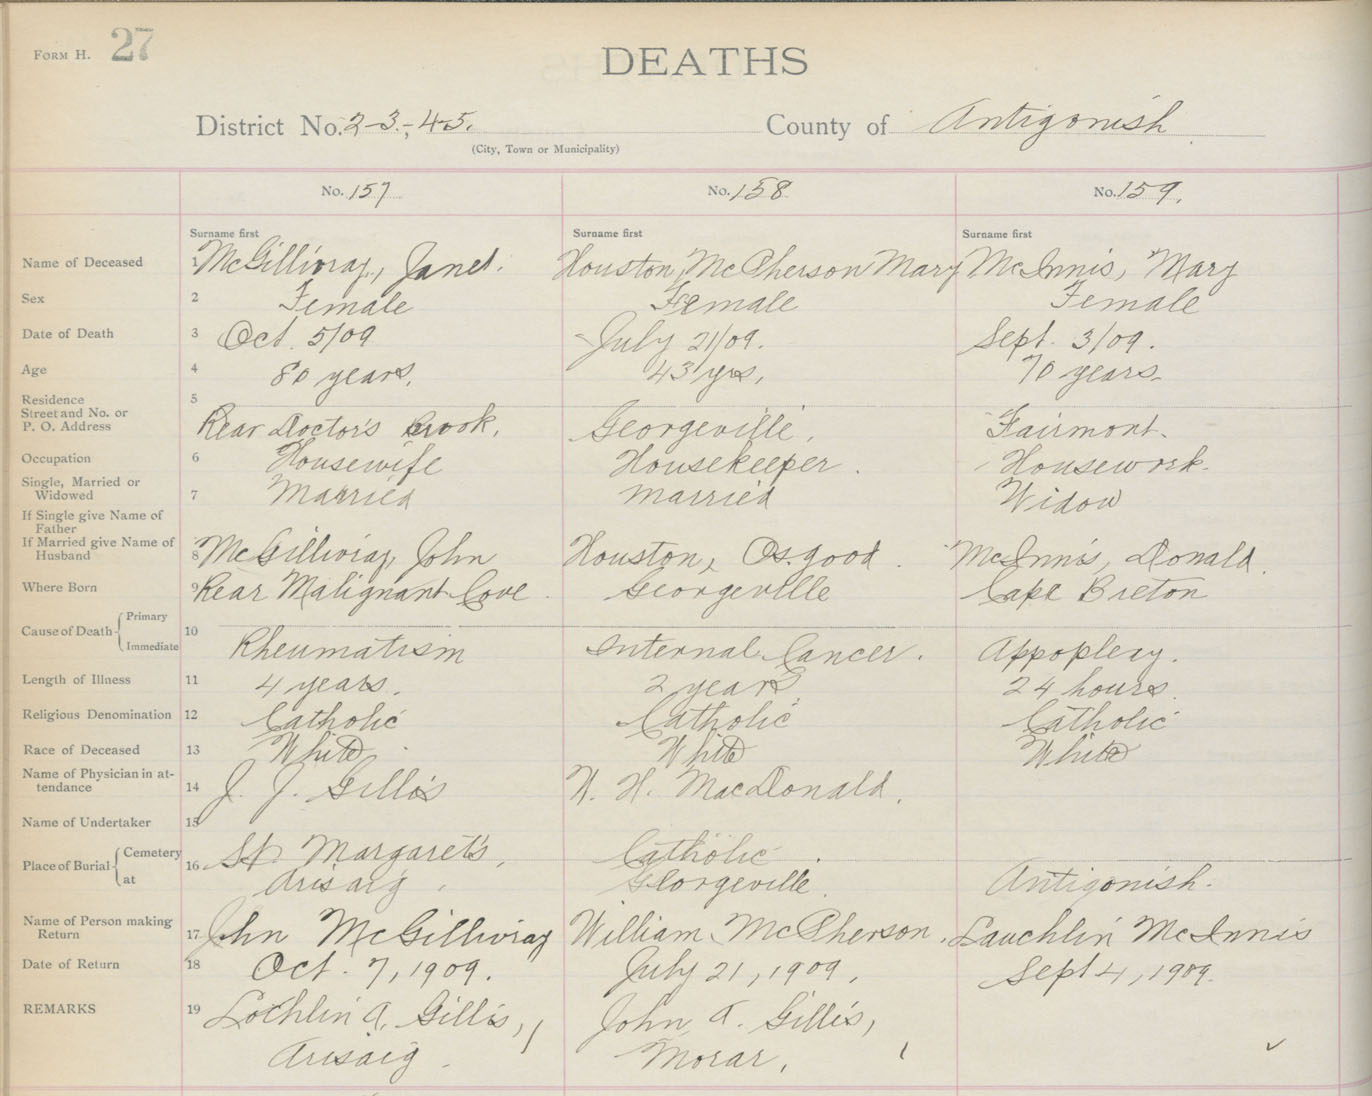 FORM H. 27
DEATHS
District No. 2-3-,4-5. County of Antigonish
(City, Town or Municipality)
No. 157 No. 158 No. 159.
Surname first Surname first Surname first
Name of Deceased 1 McGillivray, Janet. Houston, McPherson Mary McInnis, Mary
Sex 2 Female Female Female
Date of Death 3 Oct. 5/09 July 21/09. Sept. 3/09.
Age 4 80 years. 43 yrs, 70 years.
Residence 5
Street and No. or
P. O. Address Rear Doctor's Brook, Georgeville, Fairmont.
Occupation 6 Housewife Housekeeper. Housework.
Single, Married or
Widowed 7 Married Married Widow
If Single give Name of
Father
If Married give Name of
Husband 8 McGillivray, John Houston, Osgood. McInnis, Donald.
Where Born 9 Rear Malignant Cove. Georgeville Cape Breton
Cause of Death { Primary
Immediate 10 Rheumatism Internal Cancer. Appoplexy.
Length of Illness 11 4 years. 2 years. 24 hours.
Religious Denomination 12 Catholic Catholic Catholic
Race of Deceased 13 White. White White
Name of Physician in at-
tendance 14 J. J. Gillis W. H. MacDonald.
Name of Undertaker 15
Place of Burial { Cemetery 16 St. Margaret's, Catholic.
at Arisaig, Georgeville. Antigonish.
Name of Person making
Return 17 John McGillivray William McPherson. Lauchlin McInnis
Date of Return 18 Oct. 7, 1909. July 21, 1909. Sept 4, 1909.
REMARKS 19 Lochlin A. Gillis, John A. Gillis,
Arisaig. Morar,